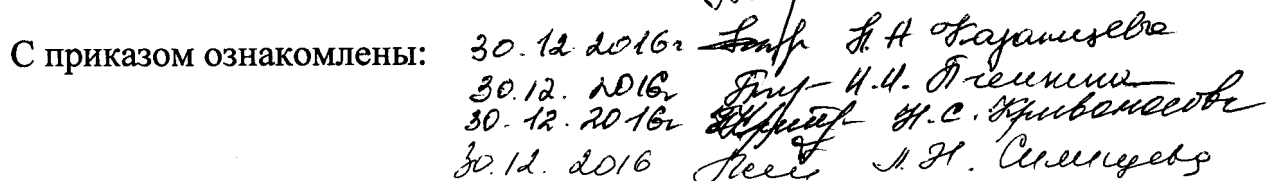 С приказом ознакомлены: 30.12.2016г Н.А Казанцева
30.12.2016г И.И. Пчелкина
30.12.2016г Н.С. Кривоносова
30.12.2016 Л.Н.